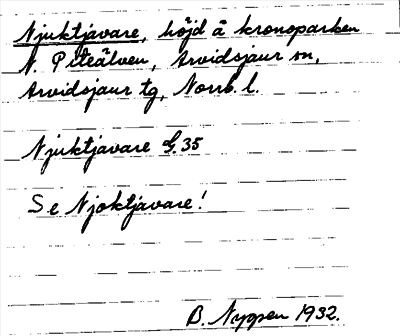 Njuktjavare, höjd å kronoparken
N. Piteälven, Arvidsjaur sn,
Arvidsjaur tg, Norrb. l.
Njuktjavare G. 35
Se Njoktjavare!
B. Nygren 1932.